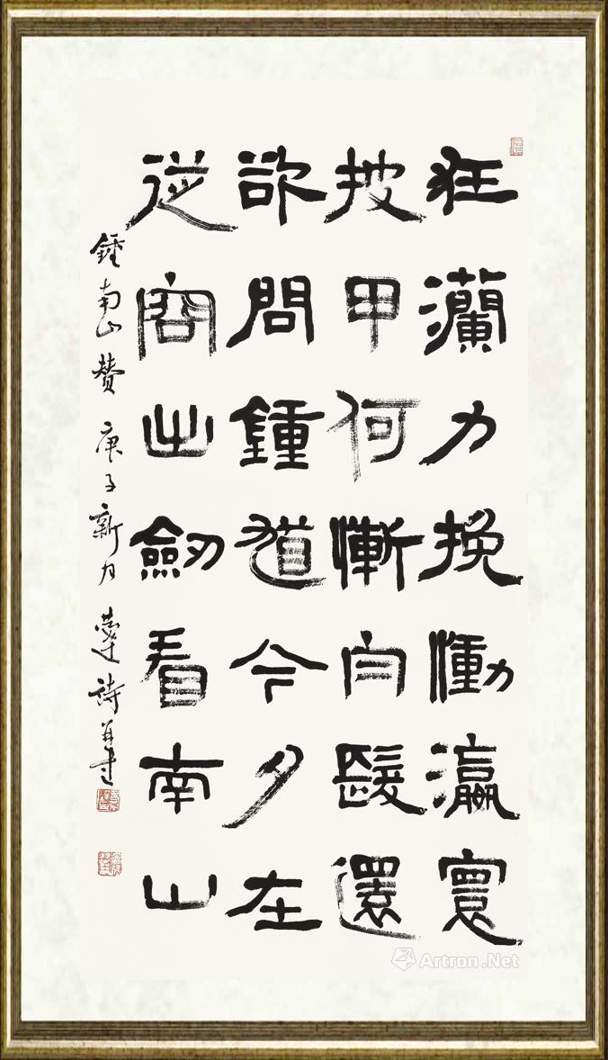 狂瀾力挽慟瀛寰
披甲何慚白髮還
欲問鍾道今夕在
從容出劒看南山
鍾南山贊 庚子新月 達詩並書
Artron.Net